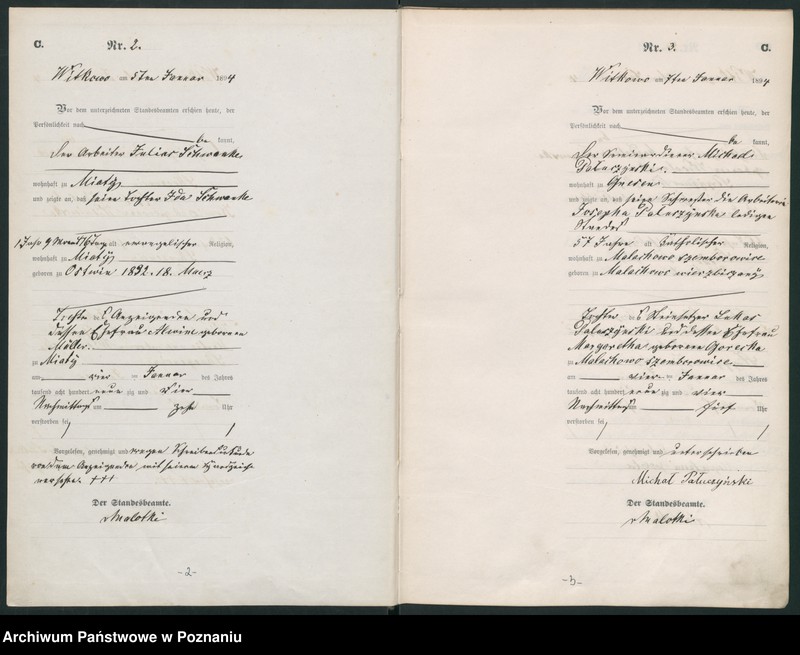 C. Nr. 2.
Witkowo am 5ten Januar 1894
Vor dem unterzeichneten Standesbeamten erschien heute, der
Persönlichkeit nach
be kannt,
der Arbeiter Julius Schwanke
wohnhaft zu Mionty
und zeigte an, daß seine Tochter Ida Schwanke
1 Jahr 9 Monat 16 Tage alt evangelischer Religion,
wohnhaft zu Mionty
geboren zu Ostwin 1892. 18. Maerz
Tochter des Anzeigenden und
dessen Ehefrau geborenen
Müller.
zu Mionty
am vier ten Januar des Jahres
tausend acht hundert neun zig und vier
Nachmittags um zehn Uhr
verstorben sei
Vorgelesen, genehmigt und wegen Schreibensunkunde
von dem Anzeigenden mit seinem Handzeichen
versehen. +++
Der Standesbeamte.
v Malotki
-2-
Nr. 3. C.
Witkowo am 7ten Januar 1894
Vor dem unterzeichneten Standesbeamten erschien heute, der
Persönlichkeit nach
be kannt,
der Seminardiener Michael
Paluczynski.
wohnhaft zu Gnesen
und zeigte an, daß seine Schwester die Arbeiterin
Josepha Paluszynska ledigen
Standes
57 Jahre alt katholischer Religion,
wohnhaft zu Malachowo szemborowice
geboren zu Malachowo wierzbiczany
Tochter des Lukas
Paluszynski und dessen Ehefrau
Margaretha geborenen Gorecka
zu Malachowo szemborowice
am vier ten Januar des Jahres
tausend acht hundert neun zig und vier
Nachmittags um fünf Uhr
verstorben sei
Vorgelesen, genehmigt und unterschrieben
Michał Pałuczyński
Der Standesbeamte.
v Malotki
-3-
Archiwum Państwowe w Poznaniu